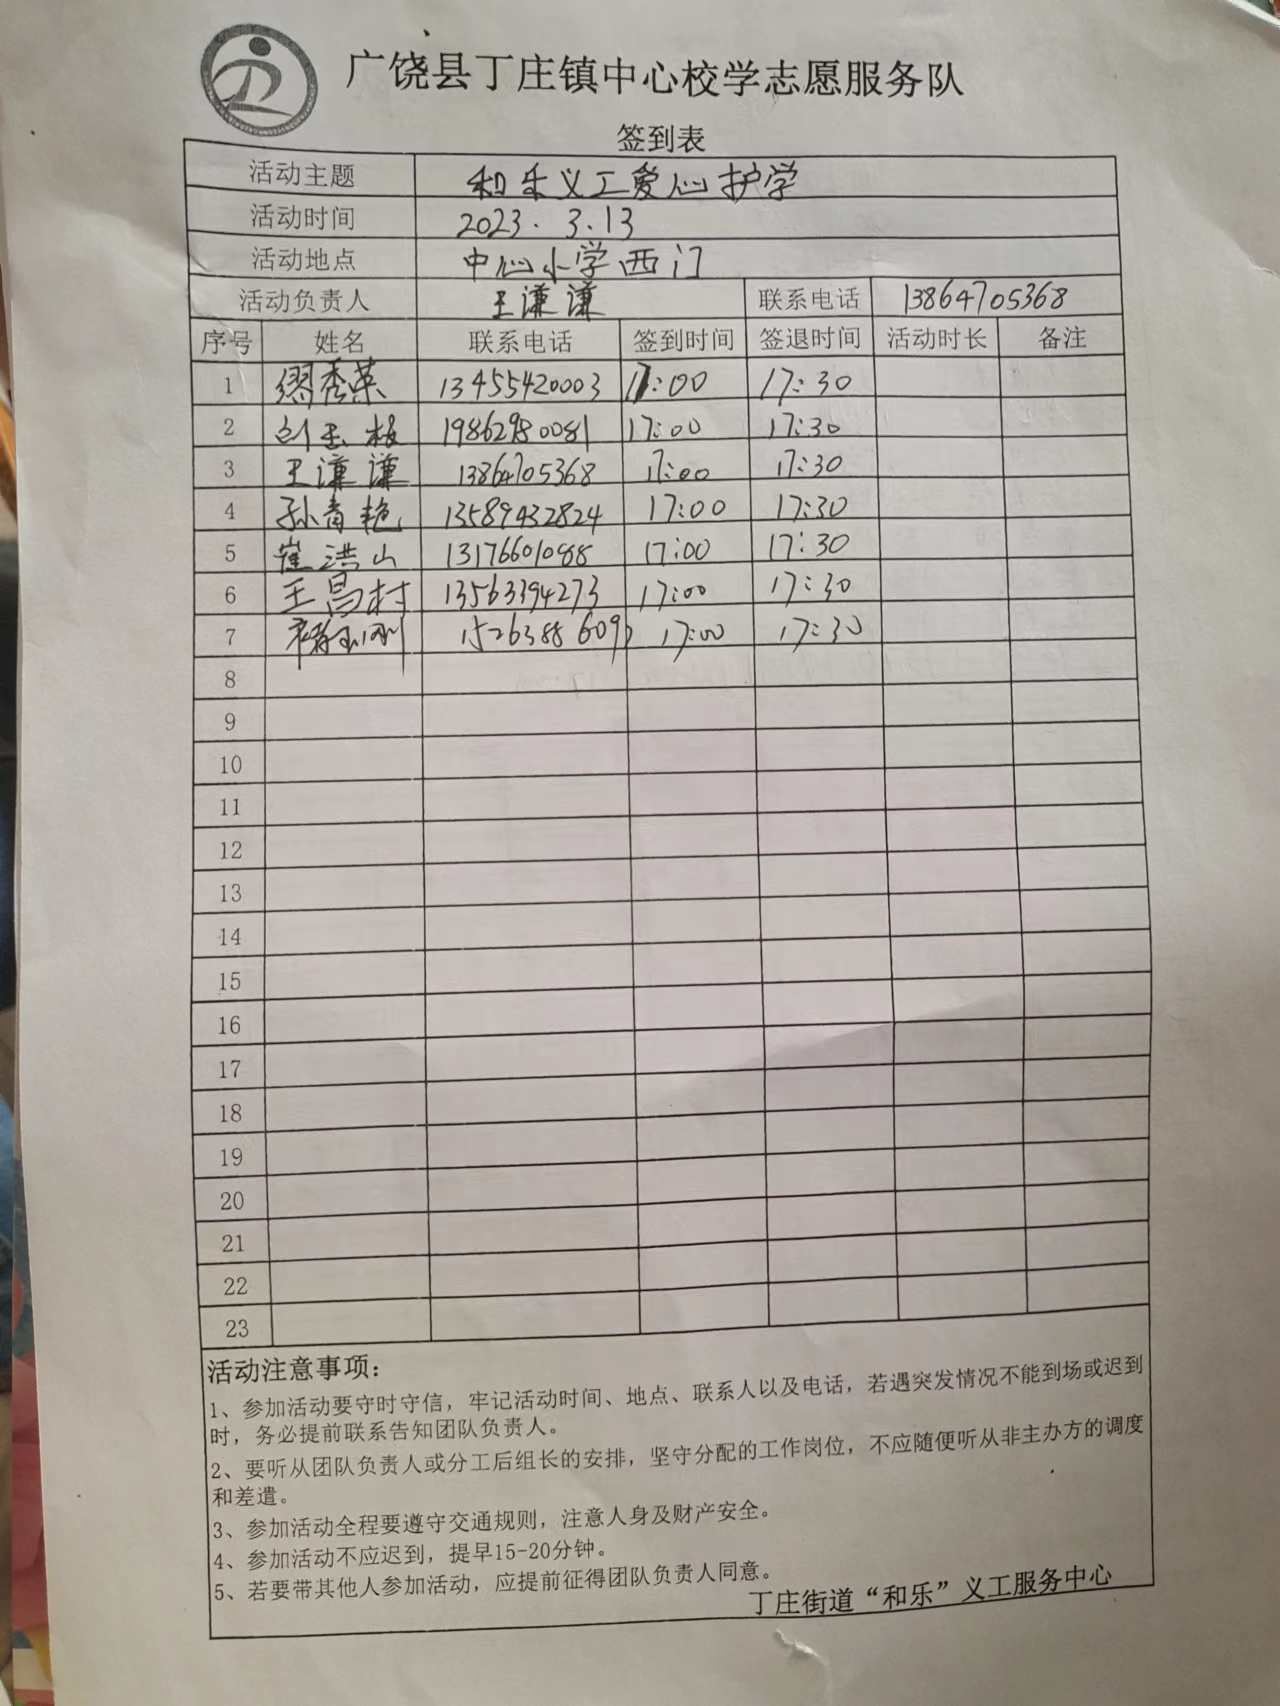 广饶县丁庄镇中心校学志愿服务队
签到表
活动主题 和乐义工爱心护学
活动时间 2023.3.13
活动地点 中心小学西门
活动负责人 王谦谦 联系电话 13864705368
序号 姓名 联系电话 签到时间 签退时间 活动时长 备注
1 缪秀英 13455420003 17:00 17:30
2 19862980081 17:00 17:30
3 王谦谦 13864705368 17:00 17:30
4 孙青艳 13589432824 17:00 17:30
5 崔洪山 13176601088 17:00 17:30
6 王昌村 13563394273 17:00 17:30
7 17:00 17:30
8
9
10
11
12
13
14
15
16
17
18
19
20
21
22
23
活动注意事项:
1、参加活动要守时守信，牢记活动时间、地点、联系人以及电话，若遇突发情况不能到场或迟到
时，务必提前联系告知团队负责人。
2、要听从团队负责人或分工后组长的安排，坚守分配的工作岗位，不应随便听从非主办方的调度
和差遣。
3、参加活动全程要遵守交通规则，注意人身及财产安全。
4、参加活动不应迟到，提早15-20分钟。
5、若要带其他人参加活动，应提前征得团队负责人同意。
丁庄街道“和乐”义工服务中心